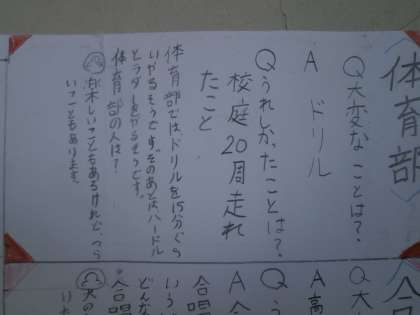 体育部
Q大変なことは？
A ドリル
Qうれしかったことは？
A 校庭20周走れ
たこと
体育部では、ドリルを15分ぐら
いやるそうです。そのあとは、ハードル
とラダーをやるそうです。
体育部の人は？
楽しいこともあるけれど、つら
いこともあります。
合
Q大
A高
Qう
A合
合唱
いう
どんな
合唱